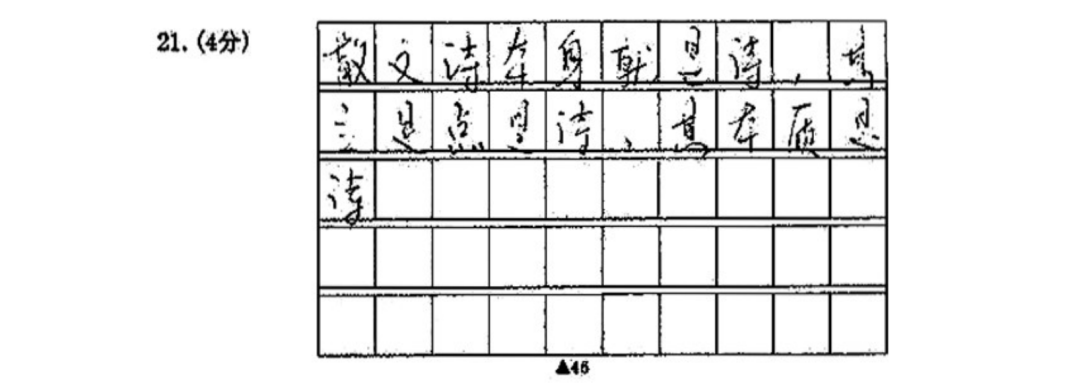 21. (4分)
散文诗本身就是诗，其
立足点是诗，其本质是
诗
▲45